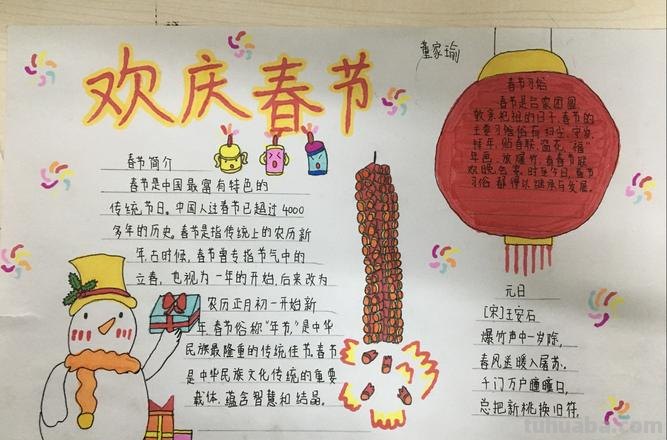 欢庆春节
董家瑜
春节简介
春节是中国最富有特色的
传统节日。中国人过春节已超过4000
多年的历史。春节是指传统上的农历新
年。古时候,春节曾专指节气中的
立春,也视为一年的开始,后来改为
农历正月初一开始新
年。春节俗称“年节”,是中华
民族最隆重的传统佳节。春节
是中华民族文化传统的重要
载体,蕴含智慧和结晶。
春节习俗
春节是合家团圆
敦亲祀祖的日子,春节的
主要习俗有扫尘、守岁、
拜年、贴春联、窗花、“福”
年画、放爆竹、看春节联
欢晚会等。时至今日,春节
习俗都得以继承与发展。
元日
[宋]王安石
爆竹声中一岁除,
春风送暖入屠苏。
千门万户曈曈日,
总把新桃换旧符。
tuhuaba.com